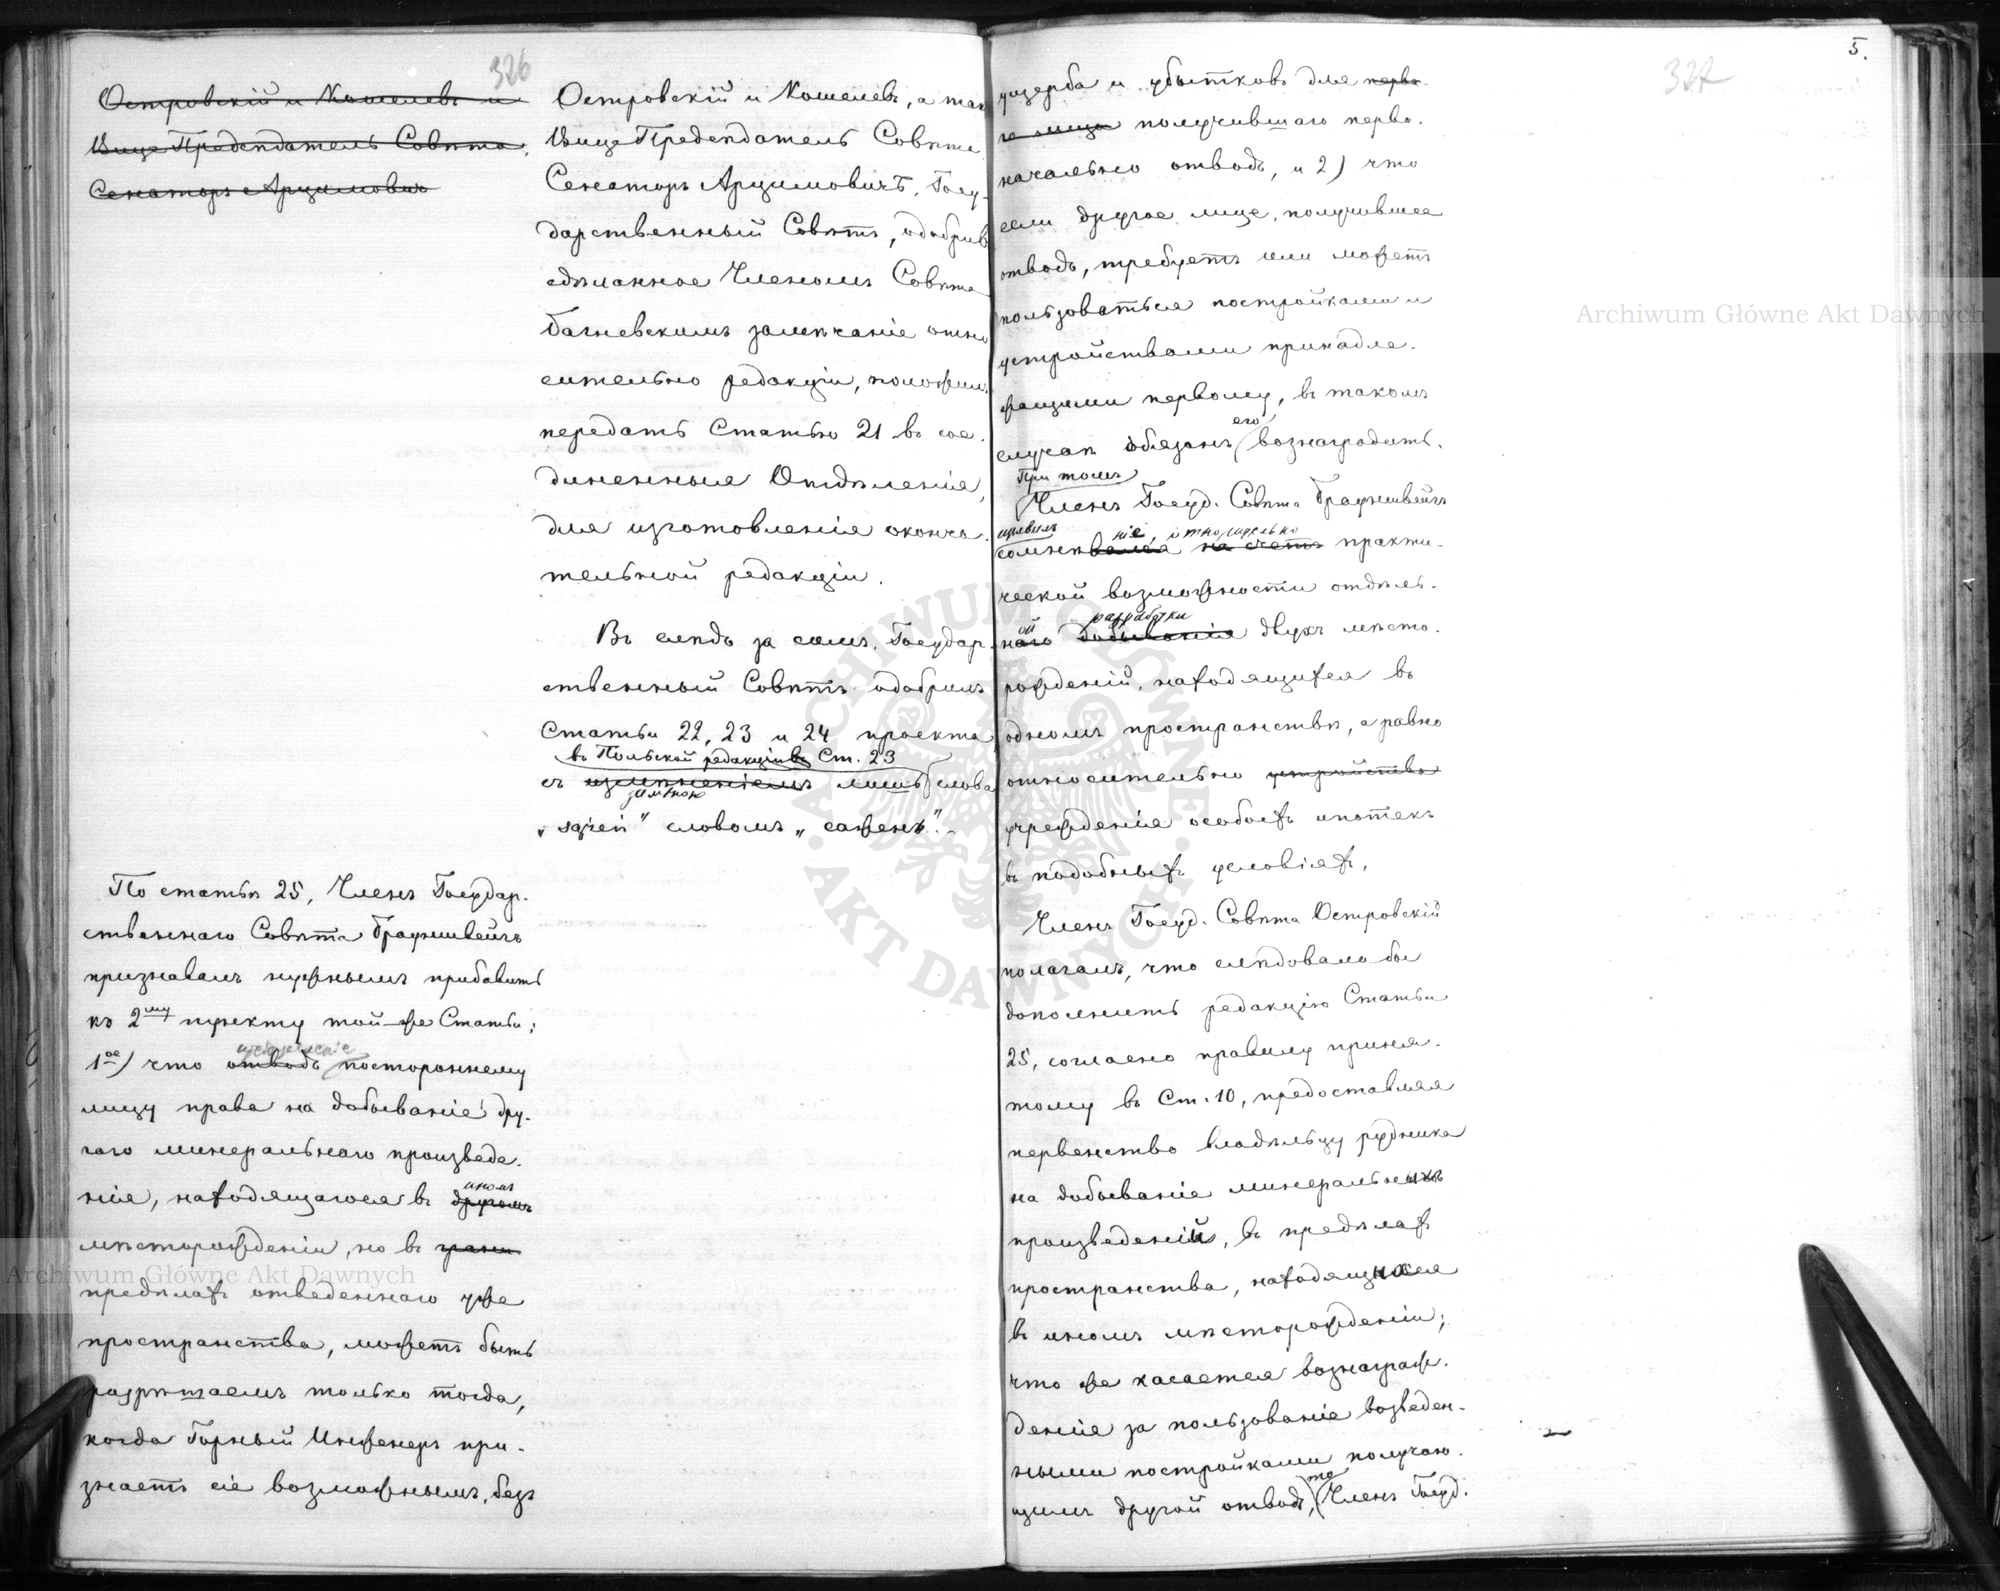 326
Островскій и Кошелевъ и
Вице Предсѣдатель Совѣта,
Сенаторъ Арцимовичъ
Островскій и Кошелевъ, а так
Вице Предсѣдатель Совѣта
Сенаторъ Арцимовичъ. Госу-
дарственный Совѣтъ, одобрив
сдѣланное Членомъ Совѣта
Багневскимъ замѣчаніе отно
сительно редакціи, положилъ
передать Статью 21 въ сое-
диненныя Отдѣленія,
для изготовленія оконча-
тельной редакціи.
Въ слѣдъ за симъ, Государ-
ственный Совѣтъ одобрилъ
Статьи 22, 23 и 24 проекта,
въ Польской редакціи Ст. 23
съ измѣненіемъ лишь слова
замѣною
„sążeń" словомъ „сажень".-
По статьѣ 25, Членъ Государ-
ственнаго Совѣта Брауншвейгъ
признавалъ нужнымъ прибавить
къ 2му пункту той-же Статьи:
1ое) что отводъ постороннему
лицу права на добываніе дру-
гаго минеральнаго произведе-
иномъ
нія, находящагося въ другомъ
мѣсторожденіи, но въ грани
предѣлахъ отведеннаго уже
пространства, можетъ быть
разрѣшаемъ только тогда,
когда Горный Инженеръ при-
знаетъ сіе возможнымъ, безъ
5.
327
ущерба и убытковъ для перво-
го лица получившаго перво-
начально отводъ, и 2) что
если другое лице, получившее
отводъ, требуетъ или можетъ
пользоваться постройками и
устройствами принадле-
жащими первому, въ такомъ
его
случаѣ обязанъ вознаградить.
При томъ
Членъ Госуд. Совѣта Брауншвейгъ
изъявилъ ніе, относительно
сомнѣвался на счетъ практи-
ческой возможности отдѣль-
ой разработки
наго добыванія двухъ мѣсто-
рожденій, находящихся въ
одномъ пространствѣ, а равно
относительно устройства
учрежденія особыхъ ипотекъ
въ подобныхъ условіяхъ.
Членъ Госуд. Совѣта Островскій
полагалъ, что слѣдовало бы
дополнить редакцію Статьи
25, согласно правилу приня-
тому въ Ст. 10, предоставляя
первенство владѣльцу рудника
на добываніе минеральныхъ
произведеній, въ предѣлахъ
пространства, находящихся
въ иномъ мѣсторожденіи;
что же касается вознаграж-
денія за пользованіе возведен-
ными постройками получаю-
то
щимъ другой отводъ, Членъ Госуд.
Archiwum Główne Akt Dawnych
Archiwum Główne Akt Dawnych
ARCHIWUM GŁÓWNE AKT DAWNYCH